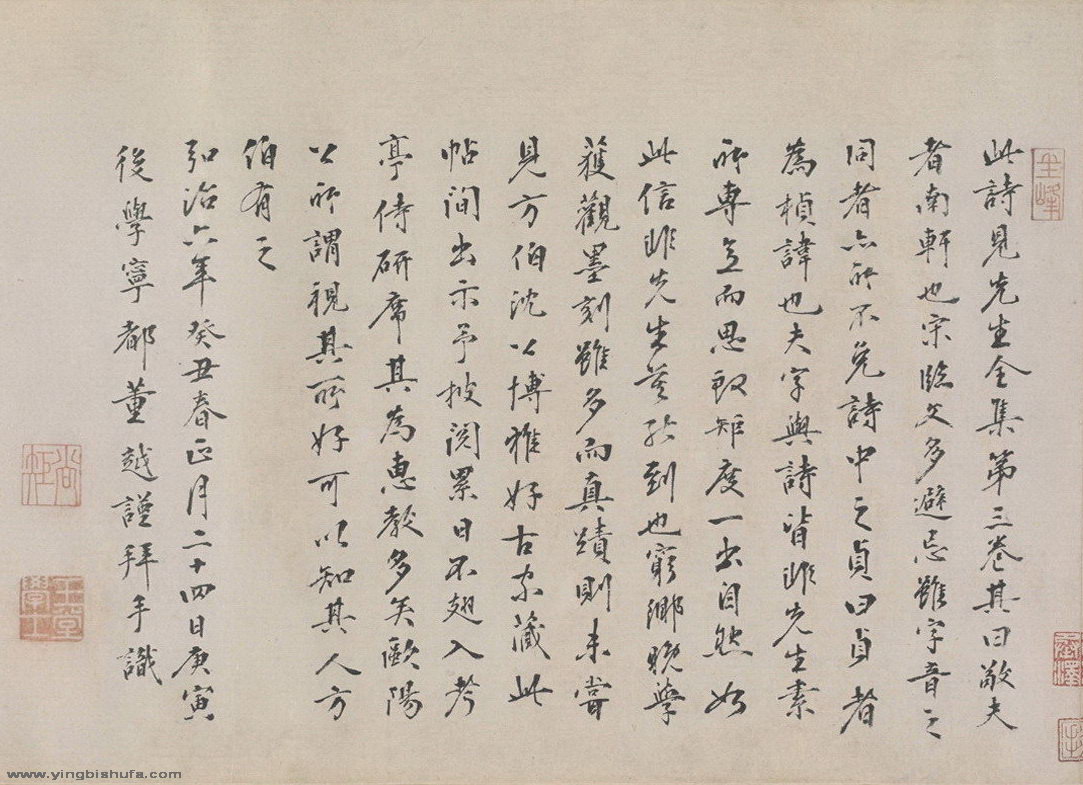 此詩見先生全集第三卷其曰敬夫
者南軒也宋臨文多避忌雖字音之
同者亦所不免詩中之貞曰貞者
為楨諱也夫字與詩皆非先生素
所專意而思致矩度一出自然如
此信非先生莫能到也窮鄉晚學
獲觀墨刻雖多而真蹟則未嘗
見方伯沈公博雅好古家藏此
帖間出示予披閱累日不翅入考
亭侍研席其為惠教多矣歐陽
公所謂視其所好可以知其人方
伯有之
弘治六年癸丑春正月二十四日庚寅
後學寧都董越謹拜手識
玉峰
www.yingbishufa.com